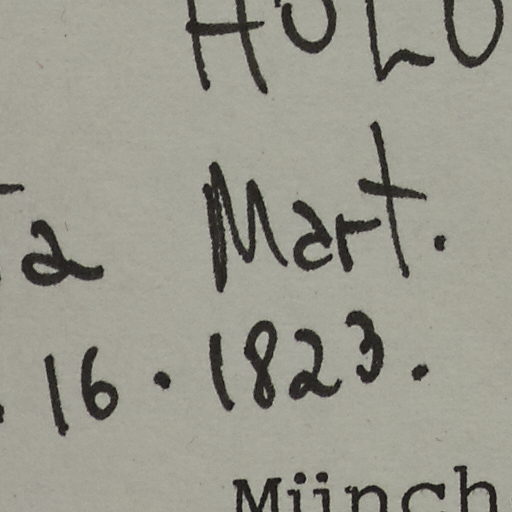 HOLO
ta Mart.
. 16 . 1823.
Münch